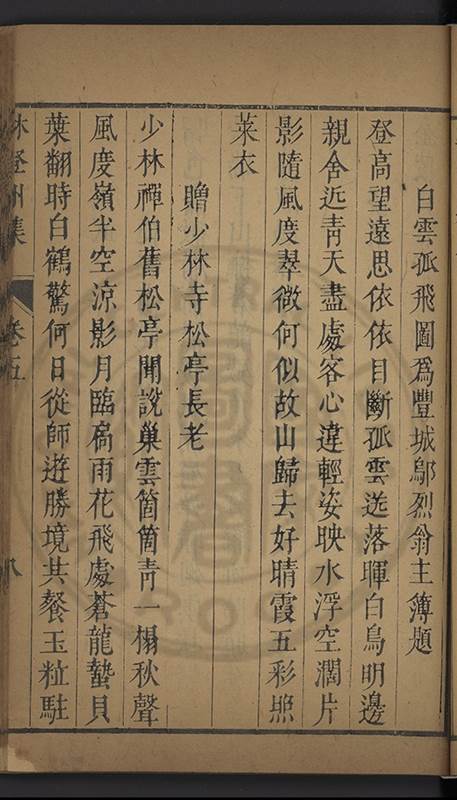 白雲孤飛圖爲豐城鄔烈翁主簿題
登高望遠思依依目斷孤雲送落暉白鳥明邊
親舍近青天盡處客心違輕姿映水浮空濶片
影隨風度翠微何似故山歸去好晴霞五彩照
萊衣
贈少林寺松亭長老
少林禪伯舊松亭聞說巢雲箇箇青一榻秋聲
風度嶺半空涼影月臨扃雨花飛處蒼龍蟄貝
葉翻時白鶴驚何日從師遊勝境共餐玉粒駐
林登州集 卷五 八